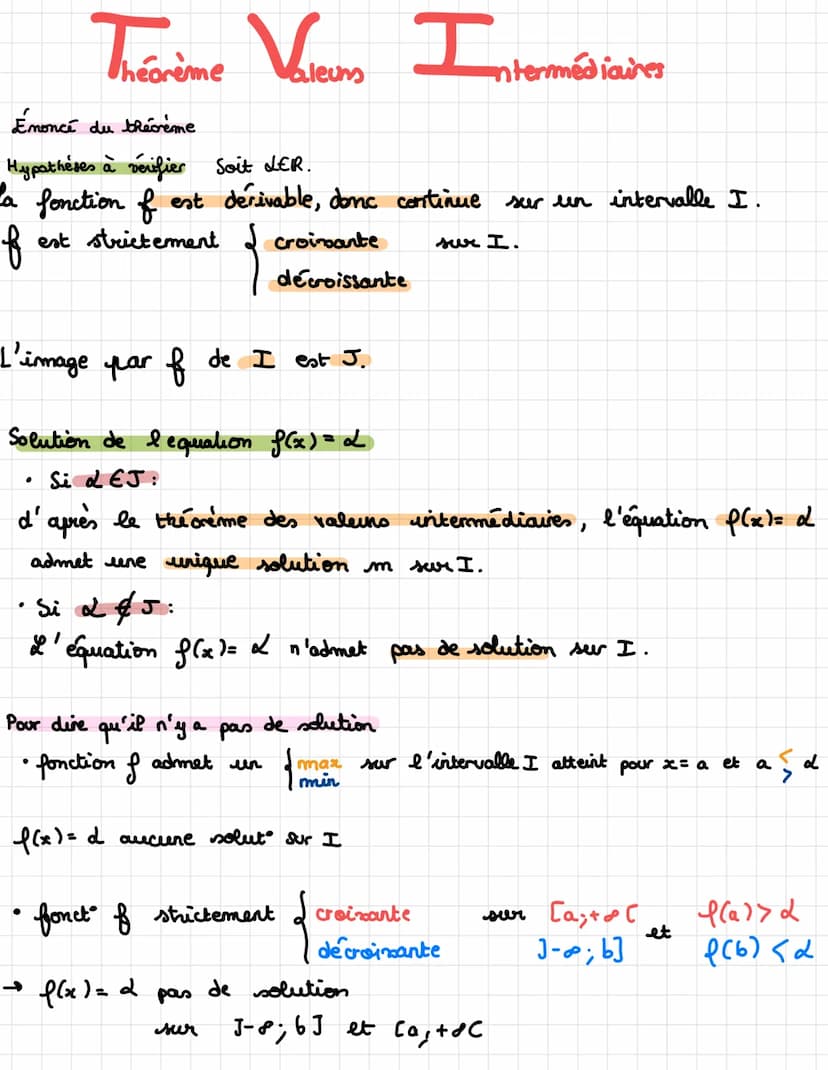 Théorème Valeurs Intermédiaires
Énoncé du théorème
Hypothèses à vérifier Soit α∈R.
la fonction f est dérivable, donc continue sur un intervalle I.
f est strictement { croissante sur I.
décroissante
L'image par f de I est J.
Solution de l'equation f(x) = α
• Si α ∈ J :
d'après le théorème des valeurs intermédiaires, l'équation f(x) = α
admet une unique solution m sur I.
• Si α ∉ J :
L'équation f(x) = α n'admet pas de solution sur I.
Pour dire qu'il n'y a pas de solution
• fonction f admet un { max sur l'intervalle I atteint pour x = a et a < α
min >
f(x) = α aucune solut° sur I
• fonct° f strictement { croissante sur [a;+∞[ et f(a) > α
décroissante ]-∞; b] f(b) < α
→ f(x) = α pas de solution
sur ]-∞; b] et [a,+∞[